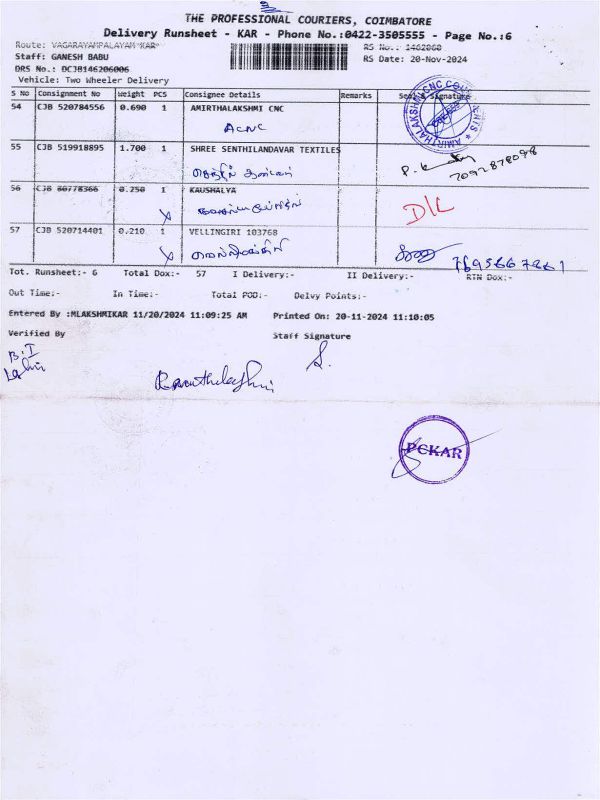 THE PROFESSIONAL COURIERS, COIMBATORE
Delivery Runsheet - KAR - Phone No.:0422-3505555 - Page No.:6
Route: VAGARAYAMPALAYAM"KAR"
RS No.: 1462060
Staff: GANESH BABU
RS Date: 20-Nov-2024
DRS No.: DCJB146206006
Vehicle: Two Wheeler Delivery
S No Consignment No Weight PCS Consignee Details Remarks Seal & Signature
54 CJB 520784556 0.690 1 AMIRTHALAKSHMI CNC
ACNC
55 CJB 519918895 1.700 1 SHREE SENTHILANDAVAR TEXTILES
P.K
7092878098
56 CJB 80778366 0.250 1 KAUSHALYA
X
D/L
57 CJB 520714401 0.210 1 VELLINGIRI 103768
X
Tot. Runsheet:- 6 Total Dox:- 57 I Delivery:- II Delivery:- RTN Dox:-
Out Time:- In Time:- Total POD:- Delvy Points:-
Entered By :MLAKSHMIKAR 11/20/2024 11:09:25 AM Printed On: 20-11-2024 11:10:05
Verified By Staff Signature
B.I
S.
PCKAR